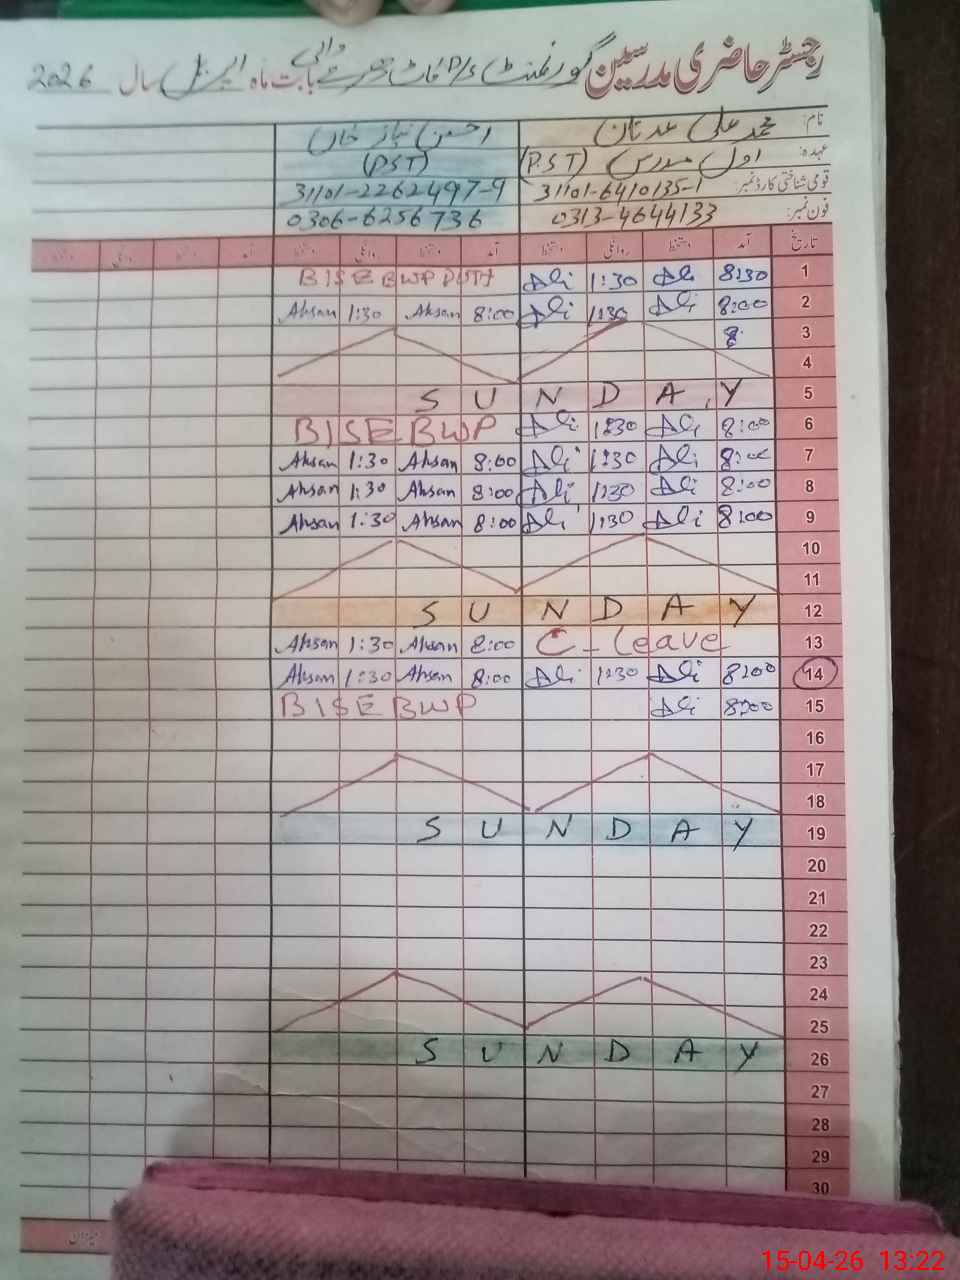 رجسٹر حاضری مدرسین گورنمنٹ P/S والی بابت ماہ اپریل سال 2026
نام: محمد علی عدنان احسن نیاز خاں
عہدہ: اول مدرس (P.S.T) (PST)
قومی شناختی کارڈ نمبر: 31101-6410135-1 31101-2262497-9
فون نمبر: 0313-4644133 0306-6256736
تاریخ آمد دستخط روانگی دستخط آمد دستخط روانگی دستخط آمد دستخط روانگی دستخط
1 8:30 Ali 1:30 Ali BISE BWP
2 8:00 Ali 1:30 Ali 8:00 Ahsan 1:30 Ahsan
3 8:
4
5 S U N D A Y
6 8:00 Ali 1:30 Ali BISE BWP
7 8:00 Ali 1:30 Ali 8:00 Ahsan 1:30 Ahsan
8 8:00 Ali 1:30 Ali 8:00 Ahsan 1:30 Ahsan
9 8:00 Ali 1:30 Ali 8:00 Ahsan 1:30 Ahsan
10
11
12 S U N D A Y
13 C-leave 8:00 Ahsan 1:30 Ahsan
14 8:00 Ali 1:30 Ali 8:00 Ahsan 1:30 Ahsan
15 8:00 Ali BISE BWP
16
17
18
19 S U N D A Y
20
21
22
23
24
25
26 S U N D A Y
27
28
29
30
میزان
15-04-26 13:22